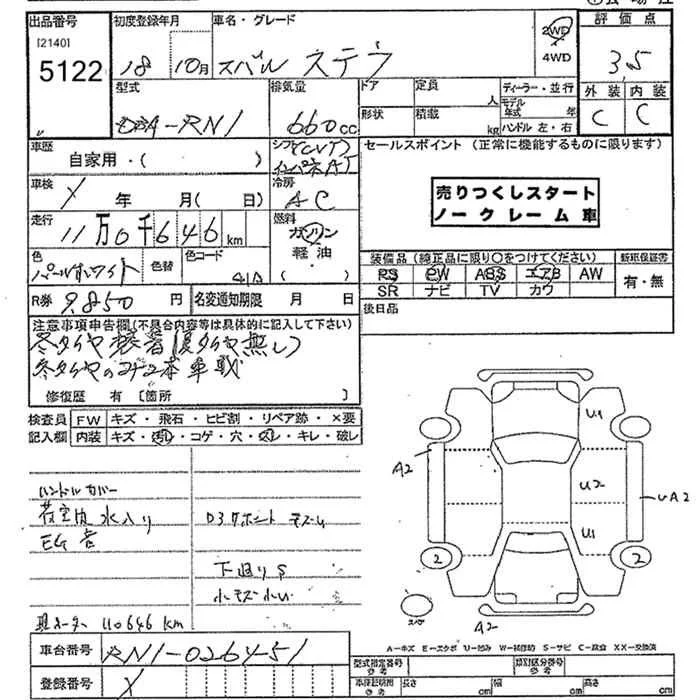 出品番号 初度登録年月 車名・グレード 評価点
[2140]
5122 18 10月 スバル ステラ 2WD 4WD 3,5
型式 排気量 ドア 定員 人 ディーラー・並行 外装 内装
DBA-RN1 660cc 形状 積載 kg モデル年式 年 ハンドル 左・右 C C
車歴 自家用・( ) シフト(CVT) インパネAT
セールスポイント (正常に機能するものに限ります)
車検 X 年 月( 日) 冷房 AC
売りつくしスタート
ノークレーム車
走行 11万0千646km 燃料 ガソリン 軽油・( )
色 パールホワイト 色替 色コード 41A
装備品(純正品に限り○をつけてください) 新車保証書
PS PW ABS エアB AW 有・無
SR ナビ TV カワ
R券 9,850円 名変通知期限 月 日 後日品
注意事項申告欄(不具合内容等は具体的に記入して下さい)
冬タイヤ装着(夏タイヤ無し)
冬タイヤのコナ2本車載
修復歴 有 [箇所 ]
検査員 FW キズ・飛石・ヒビ割・リペア跡・×要
記入欄 内装 キズ・汚れ・コゲ・穴・スレ・キレ・破レ
ハンドルカバー
荷室内水入り D3
EG音
下廻りS
小キズ小凹
現メーター 110646km
U1
A2 U2 UA2
U1
2 2
スペア
A2
A=キズ E=エクボ U=凹み W=補修跡 S=サビ C=腐食 XX=交換済
車台番号 RN1-026451
型式指定番号 参考 類別区分番号 参考
登録番号 X
車体説明書 参考 長さ cm 幅 cm 高さ cm